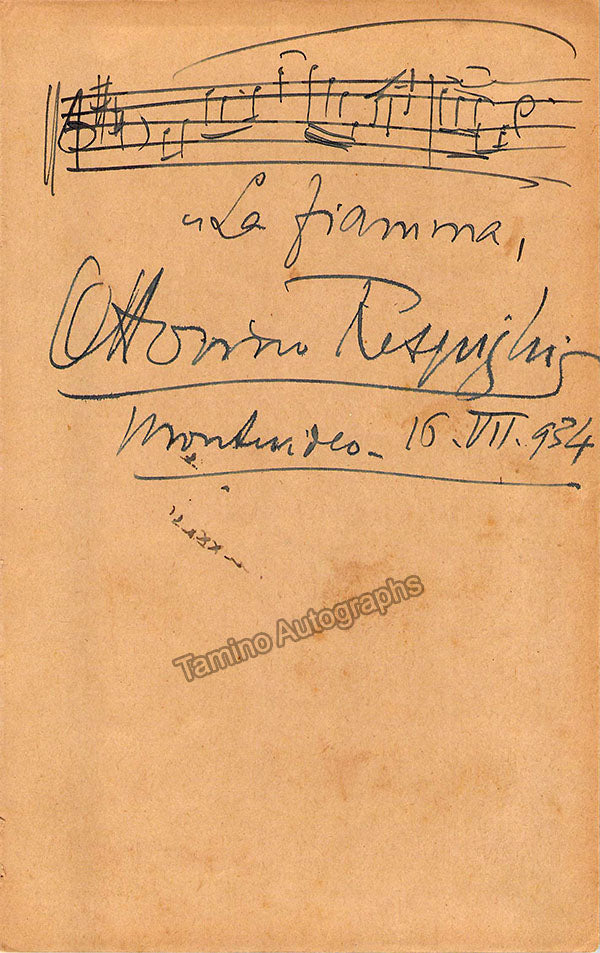 „La fiamma,
Ottorino Respighi
Montevideo - 16.VII.934
Tamino Autographs